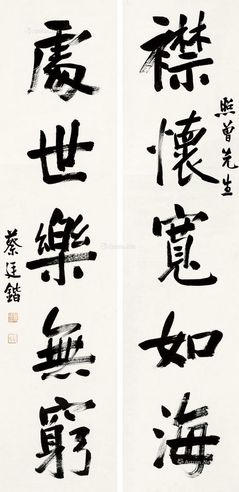 襟懷寬如海
照曾先生
處世樂無窮
蔡廷鍇